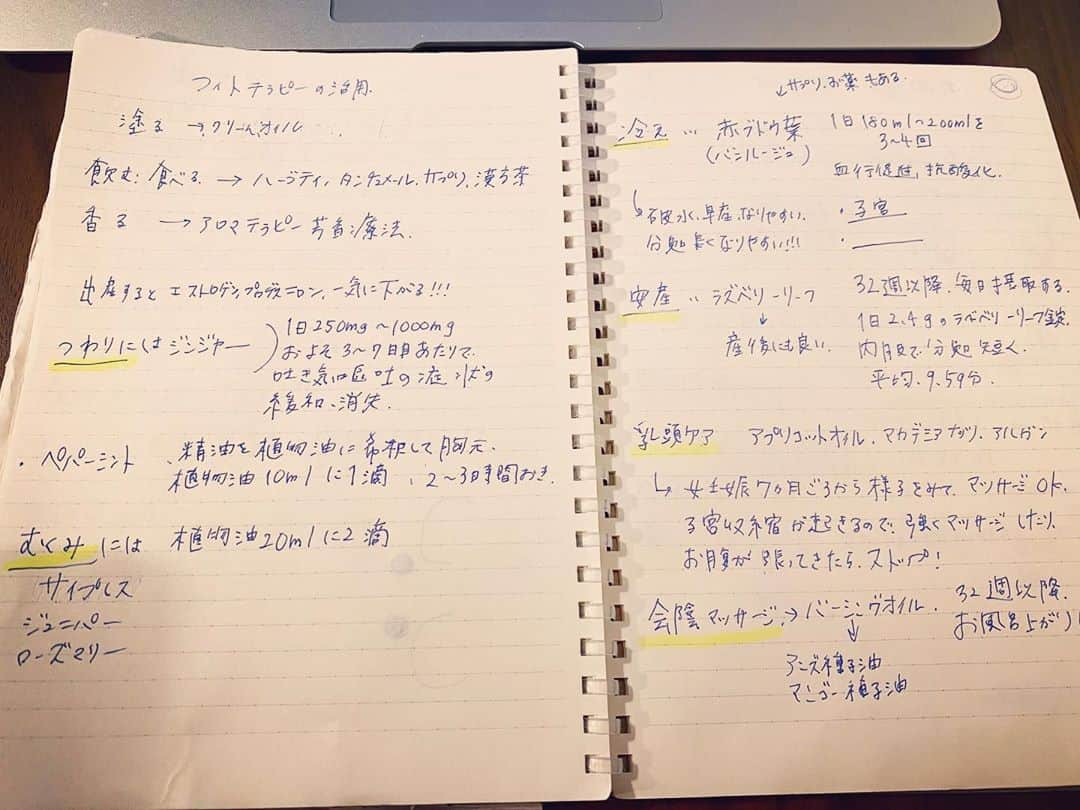 フィトテラピーの活用.
塗る → クリームオイル
飲む; 食べる. → ハーブティ, タンチュメール, サプリ, 漢方薬
香る → アロマテラピー 芳香療法.
出産すると エストロゲン, プロゲステロン, 一気に下がる!!!
つわりにはジンジャー
1日250mg〜1000mg
およそ3〜7日目あたりで.
吐き気や嘔吐の症状の
緩和、消失.
・ペパーミント 、精油を植物油に希釈して胸元.
植物油10mlに1滴 、2〜3時間おき.
むくみには 植物油20mlに2滴
サイプレス
ジュニパー
ローズマリー
↙サプリ、お薬もある.
冷え ‥ 赤ブドウ葉
(バンルージュ)
1日180ml〜200mlを
3〜4回
血行促進, 抗酸化.
↳破水、早産、なりやすい.
分娩長くなりやすい!!!
・子宮
・
安産 ‥ ラズベリーリーフ
↓
産後にも良い.
32週以降、毎日摂取する.
1日2.4gのラズベリーリーフ錠.
内服で分娩短く.
平均. 9.59分.
乳頭ケア アプリコットオイル、マカデミアナッツ、アルガン
↳ 妊娠7ヶ月ごろから様子をみて、マッサージOK.
子宮収縮が起きるので、強くマッサージしたり、
お腹が張ってきたら、ストップ!
会陰マッサージ → バージンヴオイル. 32週以降.
お風呂上がり
↓
アンズ種子油
マンゴー種子油